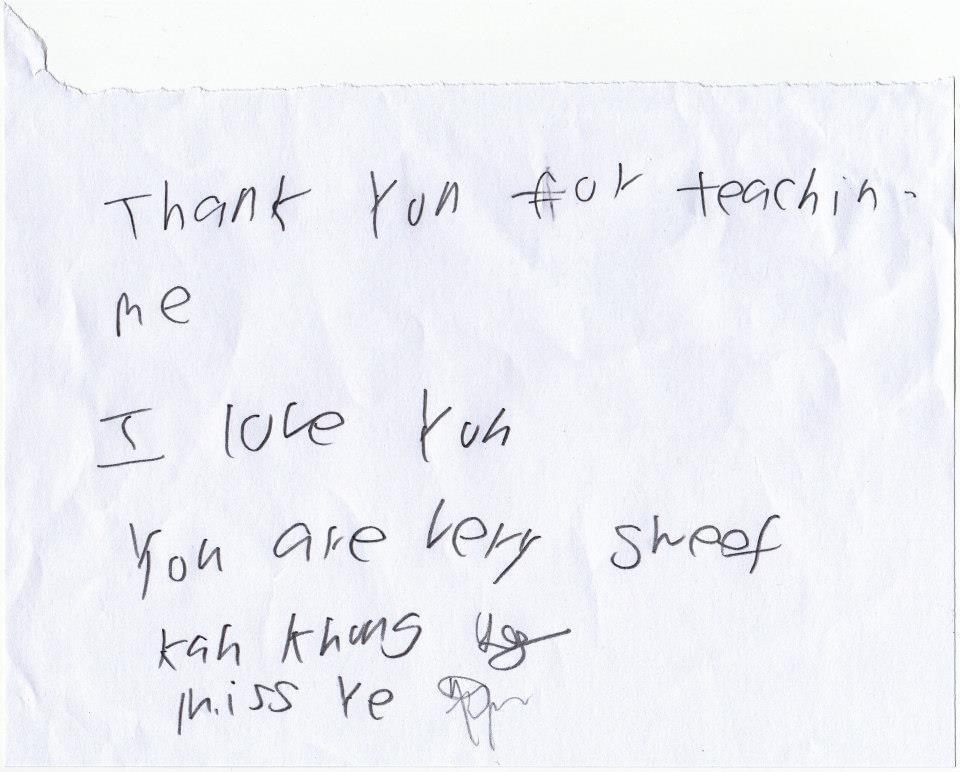 Thank You for teachin
me
I love You
You are very sweet
kah khong
miss Ye